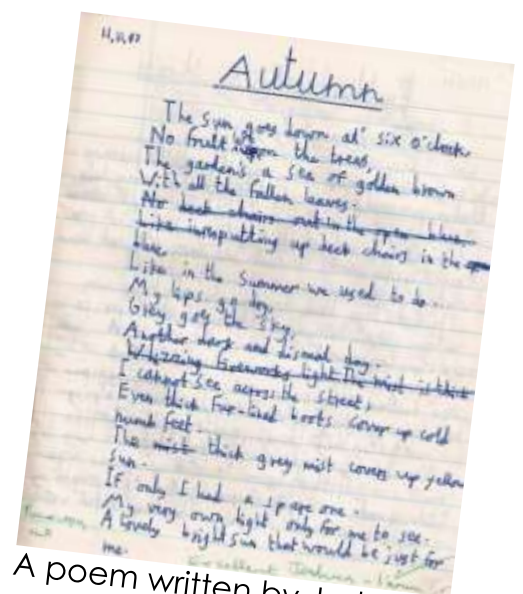 Autumn
The Sun goes down at six o'clock
No fruit upon the trees,
The garden's a sea of golden brown
With all the fallen leaves.
No deck chairs out in the open blue
Like putting up deck chairs in the
blue,
Like in the Summer we used to do...
My lips go dry,
Grey goes the sky,
Another dark and dismal day.
Whizzing fireworks light The mist is thick
I cannot see across the street,
Even thick fur-lined boots cover up cold
numb feet.
The mist thick grey mist covers up yellow
sun.
If only I had a spare one.
My very own light only for me to see.
A lovely bright sun that would be just for
me.
Excellent
A poem written by